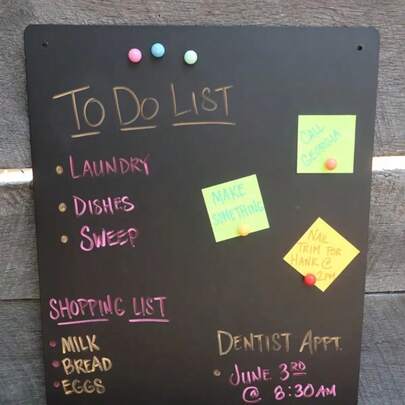 To Do List
Laundry
Dishes
Sweep
CALL
GEORGIA
MAKE
SOMETHING
NAIL
TRIM FOR
HANK @
2PM
Shopping List
Milk
Bread
Eggs
Dentist Appt.
June 3rd
@ 8:30AM